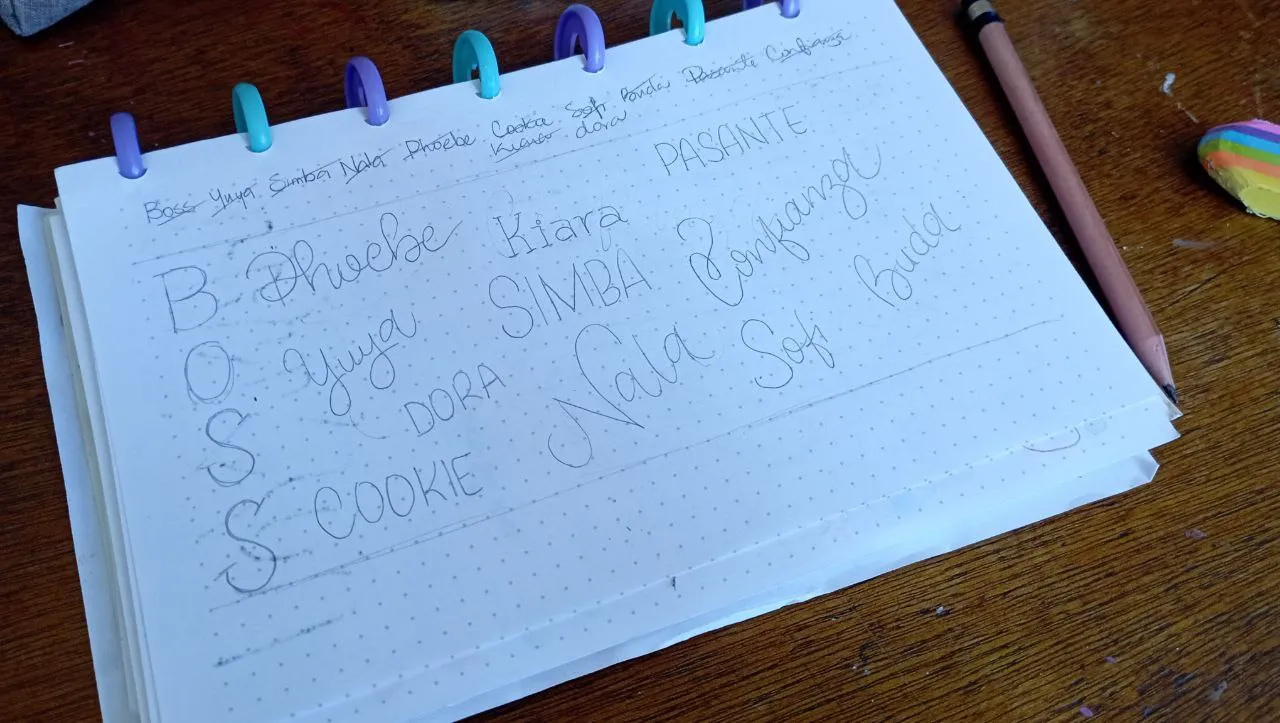 Boss Yuya Simba Nala Phoebe Cookie Sofi Buda Pasante Confianza
Kiara dora
BOSS
Phoebe Kiara PASANTE
Yuya SIMBA Confianza
DORA Nala Sofi Buda
COOKIE